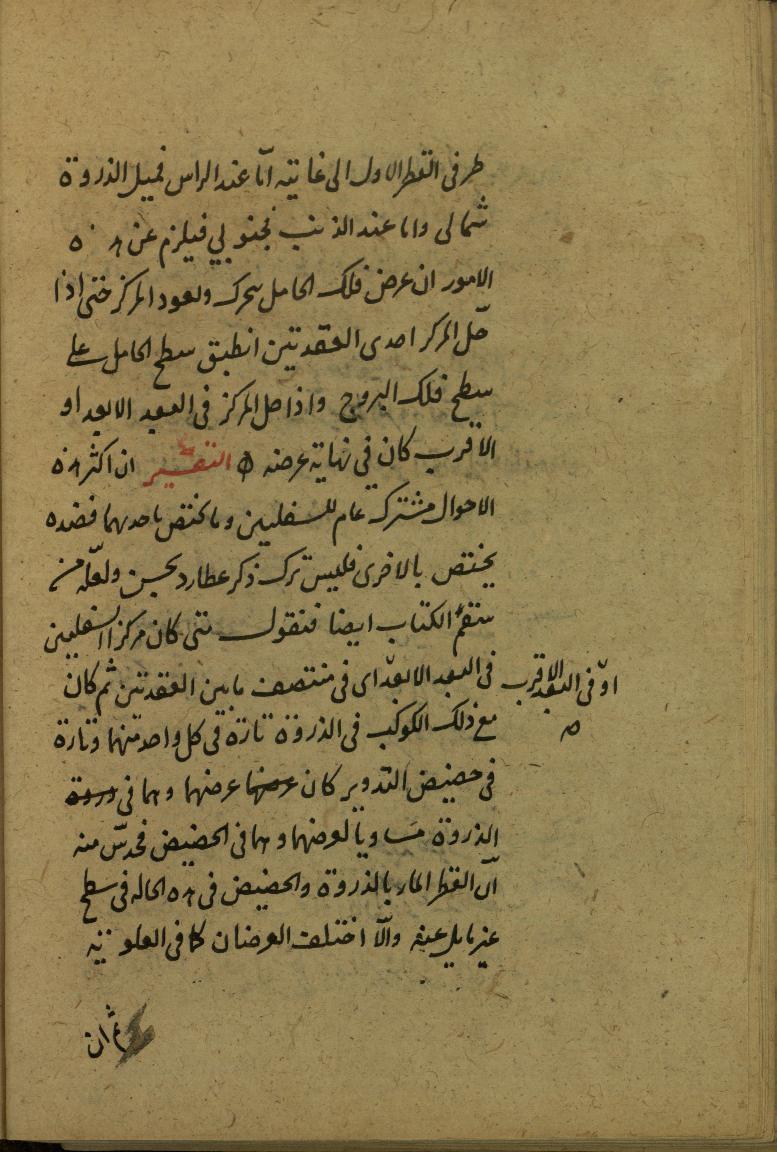 طرفى القطر الاول الى غايته امّا عند الراس فميل الذروة
شمالى واما عند الذنب فجنوبي فيلزم عن هذه
الامور ان عرض فلك الحامل يتحرك ويعود المركز حتى اذا
حّل المركز احدى العقدتين انطبق سطح الحامل على
سطح فلك البروج واذا حل المركز فى البعد الابعد او
الاقرب كان في نهاية عرضه التفسير ان اكثر هذه
الاحوال مشترك عام للسفليين وما يختص باحدهما فضده
يختص بالاخرى فليس ترك ذكر عطارد بحسن ولعلّه من
سقم الكتاب ايضا فنقول متى كان مركز السفليين
فى البعد الابعد اى فى منتصف ما بين العقدتين ثم كان
او فى البعد الاقرب
مع ذلك الكوكب فى الذروة تارة فى كل واحد منهما وتارة
فى حضيض التدوير كان عرضهما وهما فى
الذروة مساويا لعرضهما وهما فى الحضيض فحدس منه
انّ القطر المار بالذروة والحضيض فى هذه الحاله فى سطح
غير مايل عنه والّا اختلف العرضان كما فى العلويه
ثم ان